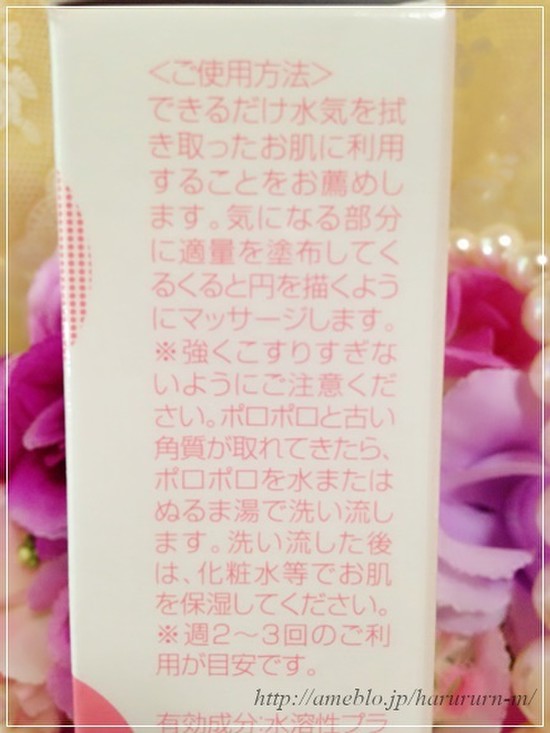 ＜ご使用方法＞
できるだけ水気を拭
き取ったお肌に利用
することをお薦めし
ます。気になる部分
に適量を塗布してく
るくると円を描くよう
にマッサージします。
※強くこすりすぎな
いようにご注意くだ
さい。ポロポロと古い
角質が取れてきたら、
ポロポロを水または
ぬるま湯で洗い流し
ます。洗い流した後
は、化粧水等でお肌
を保湿してください。
※週2～3回のご利
用が目安です。
http://ameblo.jp/harururn-m/
有効成分:水溶性プラ